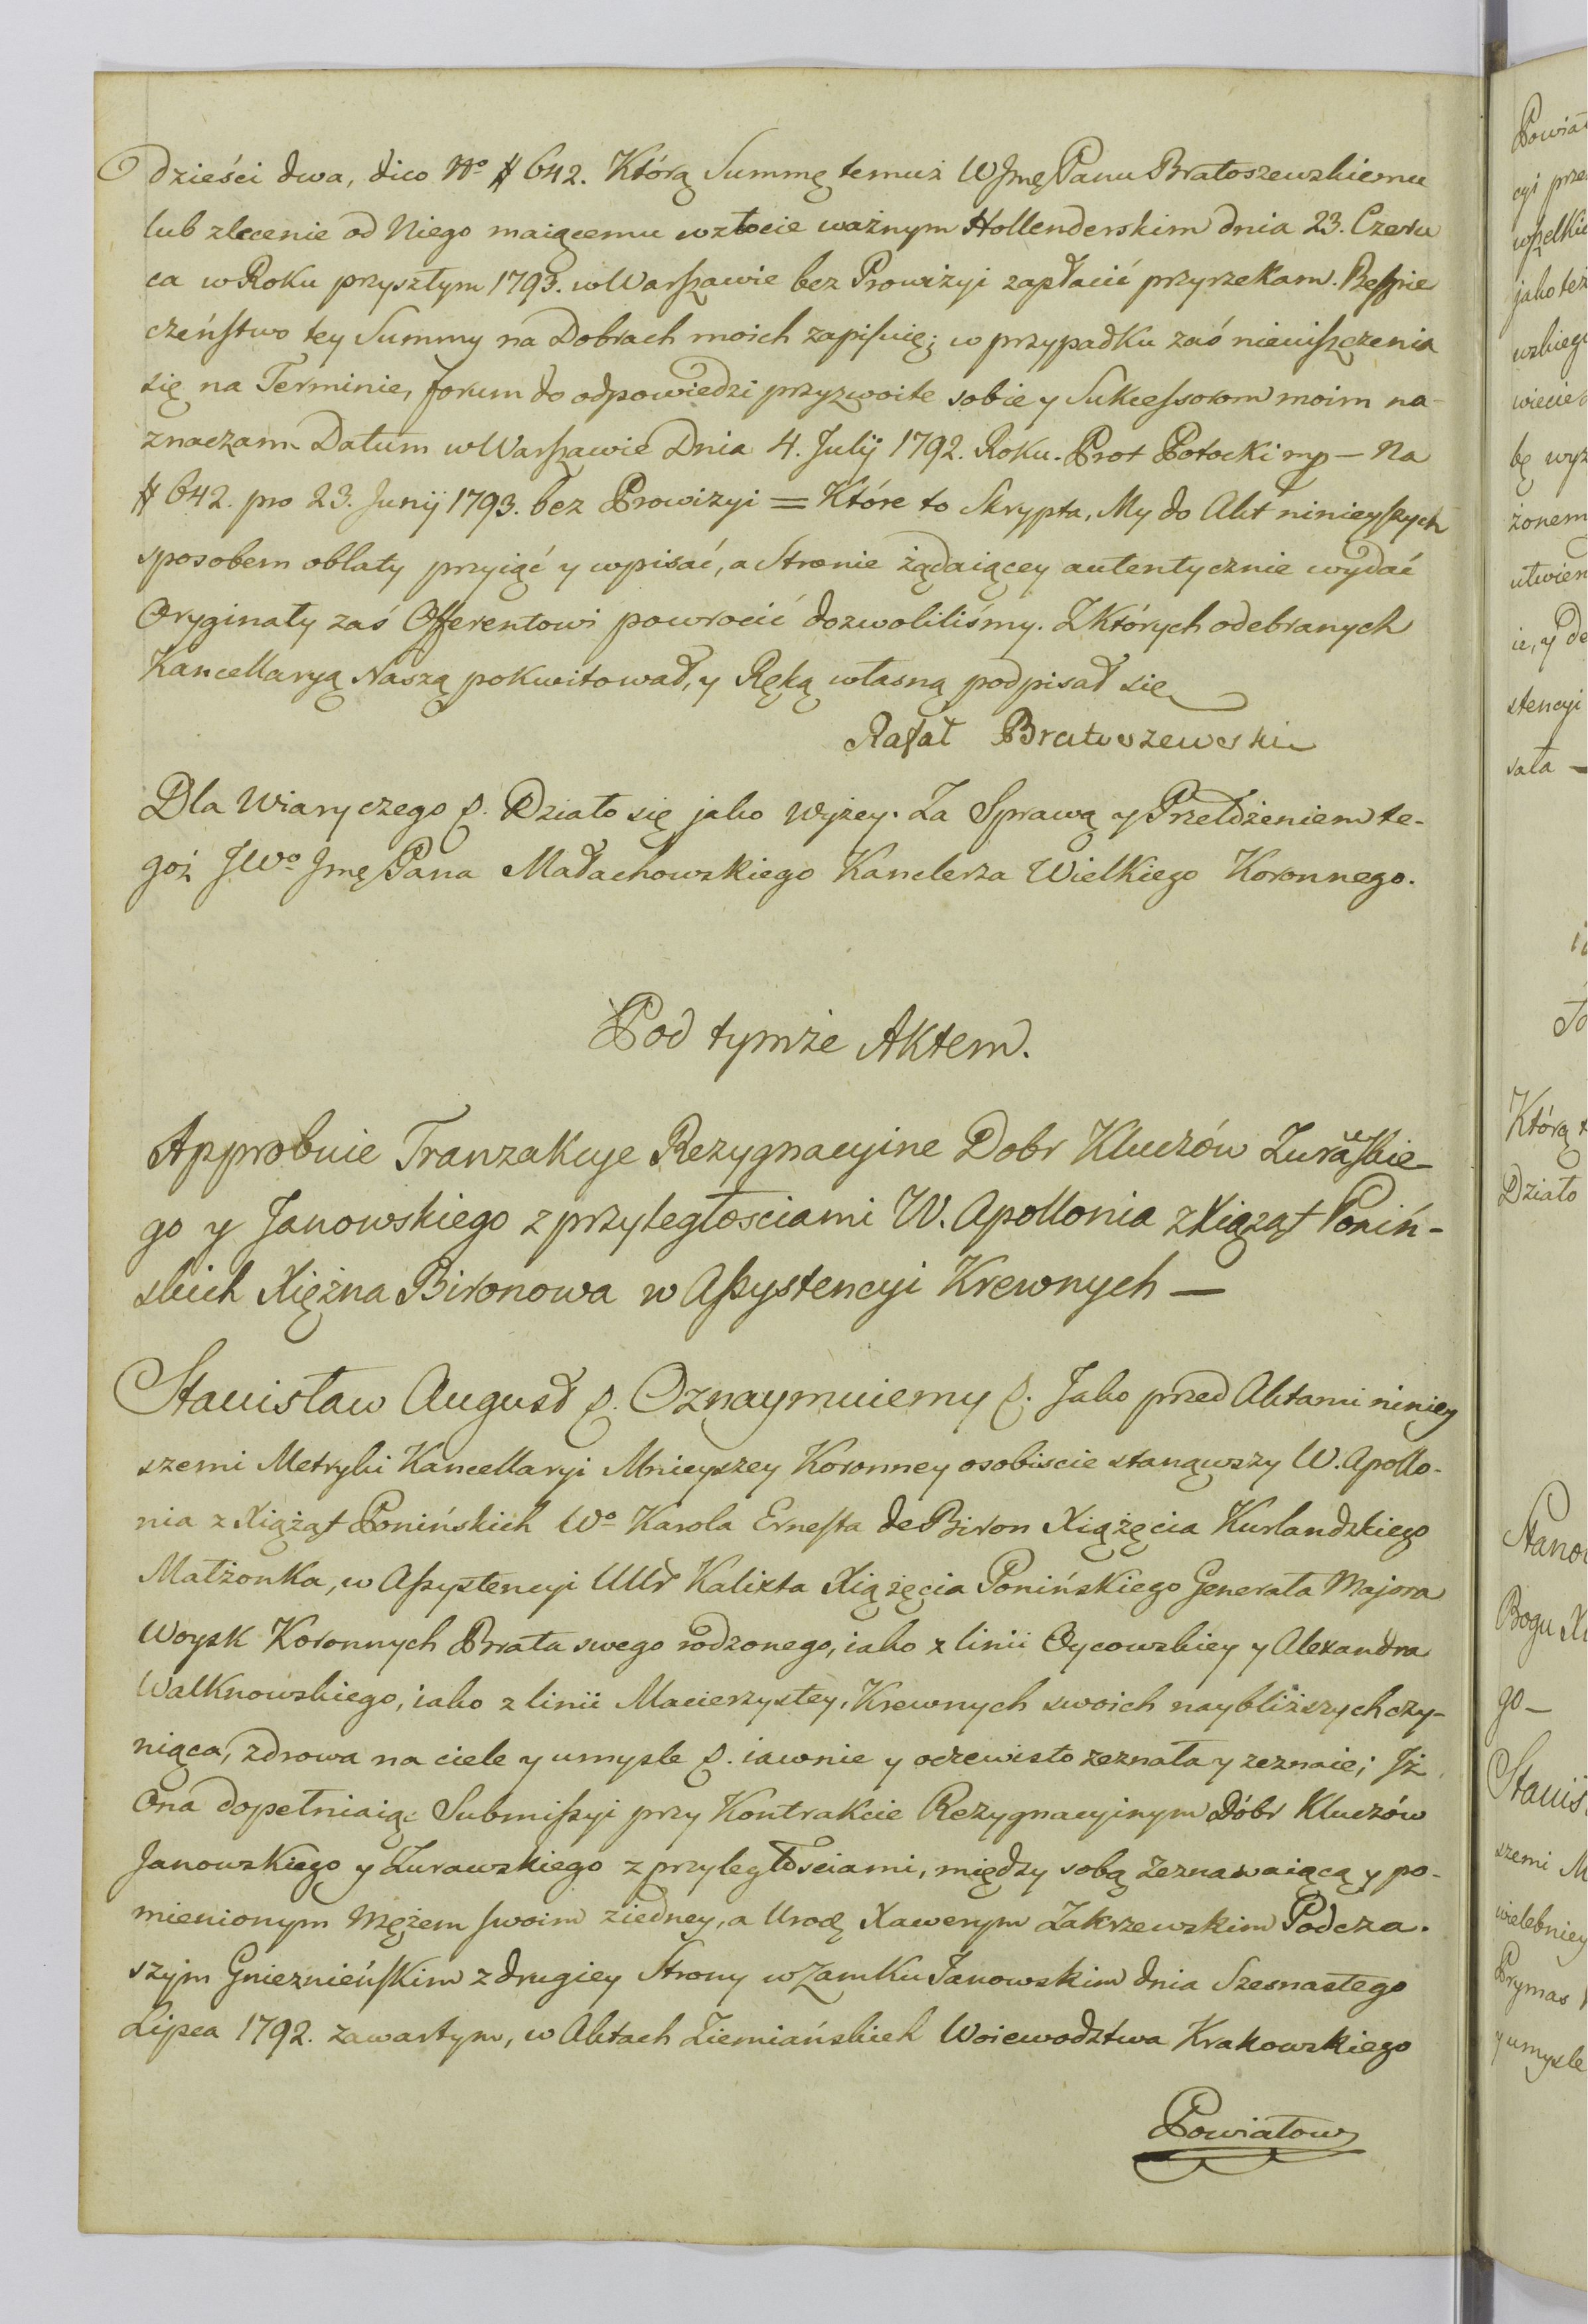 dzieści dwa, dico No # 642. Którą Summę temuż WJmę Panu Bratoszewskiemu
lub zlecenie od Niego maiącemu wzłocie ważnym Hollenderskim dnia 23. Czerw
ca w Roku przyszłym 1793. w Warszawie bez Prowizyi zapłacić przyrzekam. Beśpie
czeństwo tey Summy na Dobrach moich zapisuię; w przypadku zaś nieuiszczenia
się na Terminie, forum do odpowiedzi przyzwoite sobie y Sukcessorom moim na-
znaczam. Datum w Warszawie Dnia 4. Julij 1792. Roku. Prot Potocki mp — Na
# 642. pro 23. Junij 1793. bez Prowizyi = Które to Skrypta, My do Akt ninieyszych
sposobem oblaty przyiąć y wypisać, a Stronie żądaiącey autentycznie wydać
Oryginały zaś Offerentowi powrocić dozwoliliśmy. Z Których odebranych
Kancellaryą Naszą pokwitował, y Ręką własną podpisał się
Rafał Bratoszewski
Dla Wiary czego p. Działo się jako wyżey. Za Sprawą y Przełożeniem te-
goż JWo Jmę Pana Małachowskiego Kanclerza Wielkiego Koronnego.
Pod tymże Aktem.
Approbuie Tranzakcye Rezygnacyine Dobr Kluczów Zuraskie-
go y Janowskiego z przyległosciami W. Apollonia z Xiążąt Poniń-
skich Xiężna Bironowa w Assystencyi Krewnych —
Stanisław August p. Oznaymuiemy p. Jako przed Aktami niniey
szemi Metryki Kancellaryi Mnieyszey Koronney osobiscie stanąwszy W. Apollo-
nia z Xiążąt Ponińskich Wo Karola Ernesta de Biron Xiążęcia Kurlandzkiego
Małżonka, w Assystencyi UUr Kalixta Xiążęcia Ponińskiego Generała Majora
Woysk Koronnych Brata swego rodzonego, iako z linii Oycowskiey y Alexandra
Walknowskiego, iako z linii Macierzystey, Krewnych swoich naybliższych czy-
niąca, zdrowa na ciele y umysle p. iawnie y oczewisto zeznała y zeznaie; Jż
Ona dopełniaiąc Submissyi przy Kontrakcie Rezygnacyinym Dóbr Kluczów
Janowskiego y Zurawskiego z przyległościami, między sobą zeznawaiącą y po-
mienionym Mężem swoim ziedney, a Urodz Xawerym Zakrzewskim Podcza-
szym Gnieznieńskim z drugiey Strony w Zamku Janowskim dnia Szesnastego
Lipca 1792. zawartym, w Aktach Ziemiańskich Woiewodztwa Krakowskiego
Powiatow